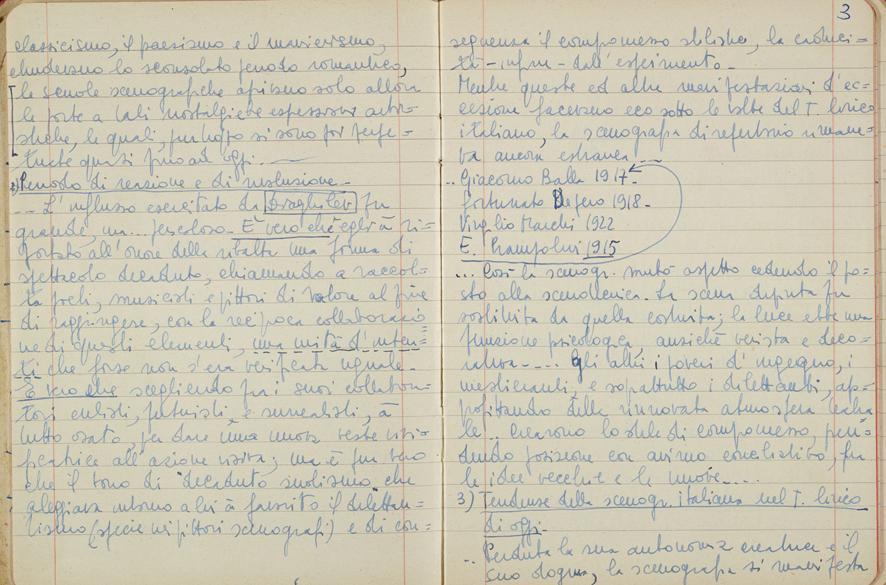 classicismo, il paesismo e il manierismo,
chiudevano lo sconsolato periodo romantico,
le scuole scenografiche aprirono solo allora
le porte a tali nostalgiche espressioni arti=
stiche, le quali, purtroppo si sono poi perpe=
tuate quasi fino ad oggi.
2) Periodo di reazione e di rivoluzione -
... L'influsso esercitato da Diaghilev fu
grande, ma... pericoloso. È vero che egli à ri=
portato all'onore della ribalta una forma di
spettacolo decaduto, chiamando a raccol=
ta poeti, musicisti e pittori di valore al fine
di raggiungere, con la reciproca collaborazio=
ne di questi elementi, una unità d'inten=
ti che forse non s'era verificata uguale.
È vero che scegliendo fra i suoi collabora=
tori cubisti, futuristi, e surrealisti, à
tutto osato, per dare una nuova veste vivi=
ficatrice all'azione visiva; ma è pur vero
che il tono di "decaduto snobismo" che
aleggiava intorno a lui à favorito il dilettan=
tismo (specie nei pittori scenografi) e di con=
3
seguenza il compromesso stilistico, la caduci=
tà dell'esperimento.
Mentre queste ed altre manifestazioni d'ec=
cezione facevano eco sotto le volte del T. lirico
italiano, la scenografia di repertorio rimane=
va ancora estranea...
.. Giacomo Balla 1917
Fortunato Depero 1918 -
Virgilio Marchi 1922
E. Prampolini 1915
... Così la scenogr. mutò aspetto cedendo il po=
sto alla scenotecnica. La scena dipinta fu
sostituita da quella costruita; la luce ebbe una
funzione psicologica, anziché verista e deco=
rativa .... Gli altri, i poveri d'ingegno, i
mestieranti, e soprattutto i dilettanti, ap=
profittando della rinnovata atmosfera teatra
le... crearono lo stile di compromesso, pren=
dendo posizione con animo conciliativo, fra
le idee vecchie e le nuove....
3) Tendenze della scenogr. italiana nel T. lirico
di oggi.
.. Perduta la sua autonomia creatrice e il
suo dogma, la scenografia si manifesta